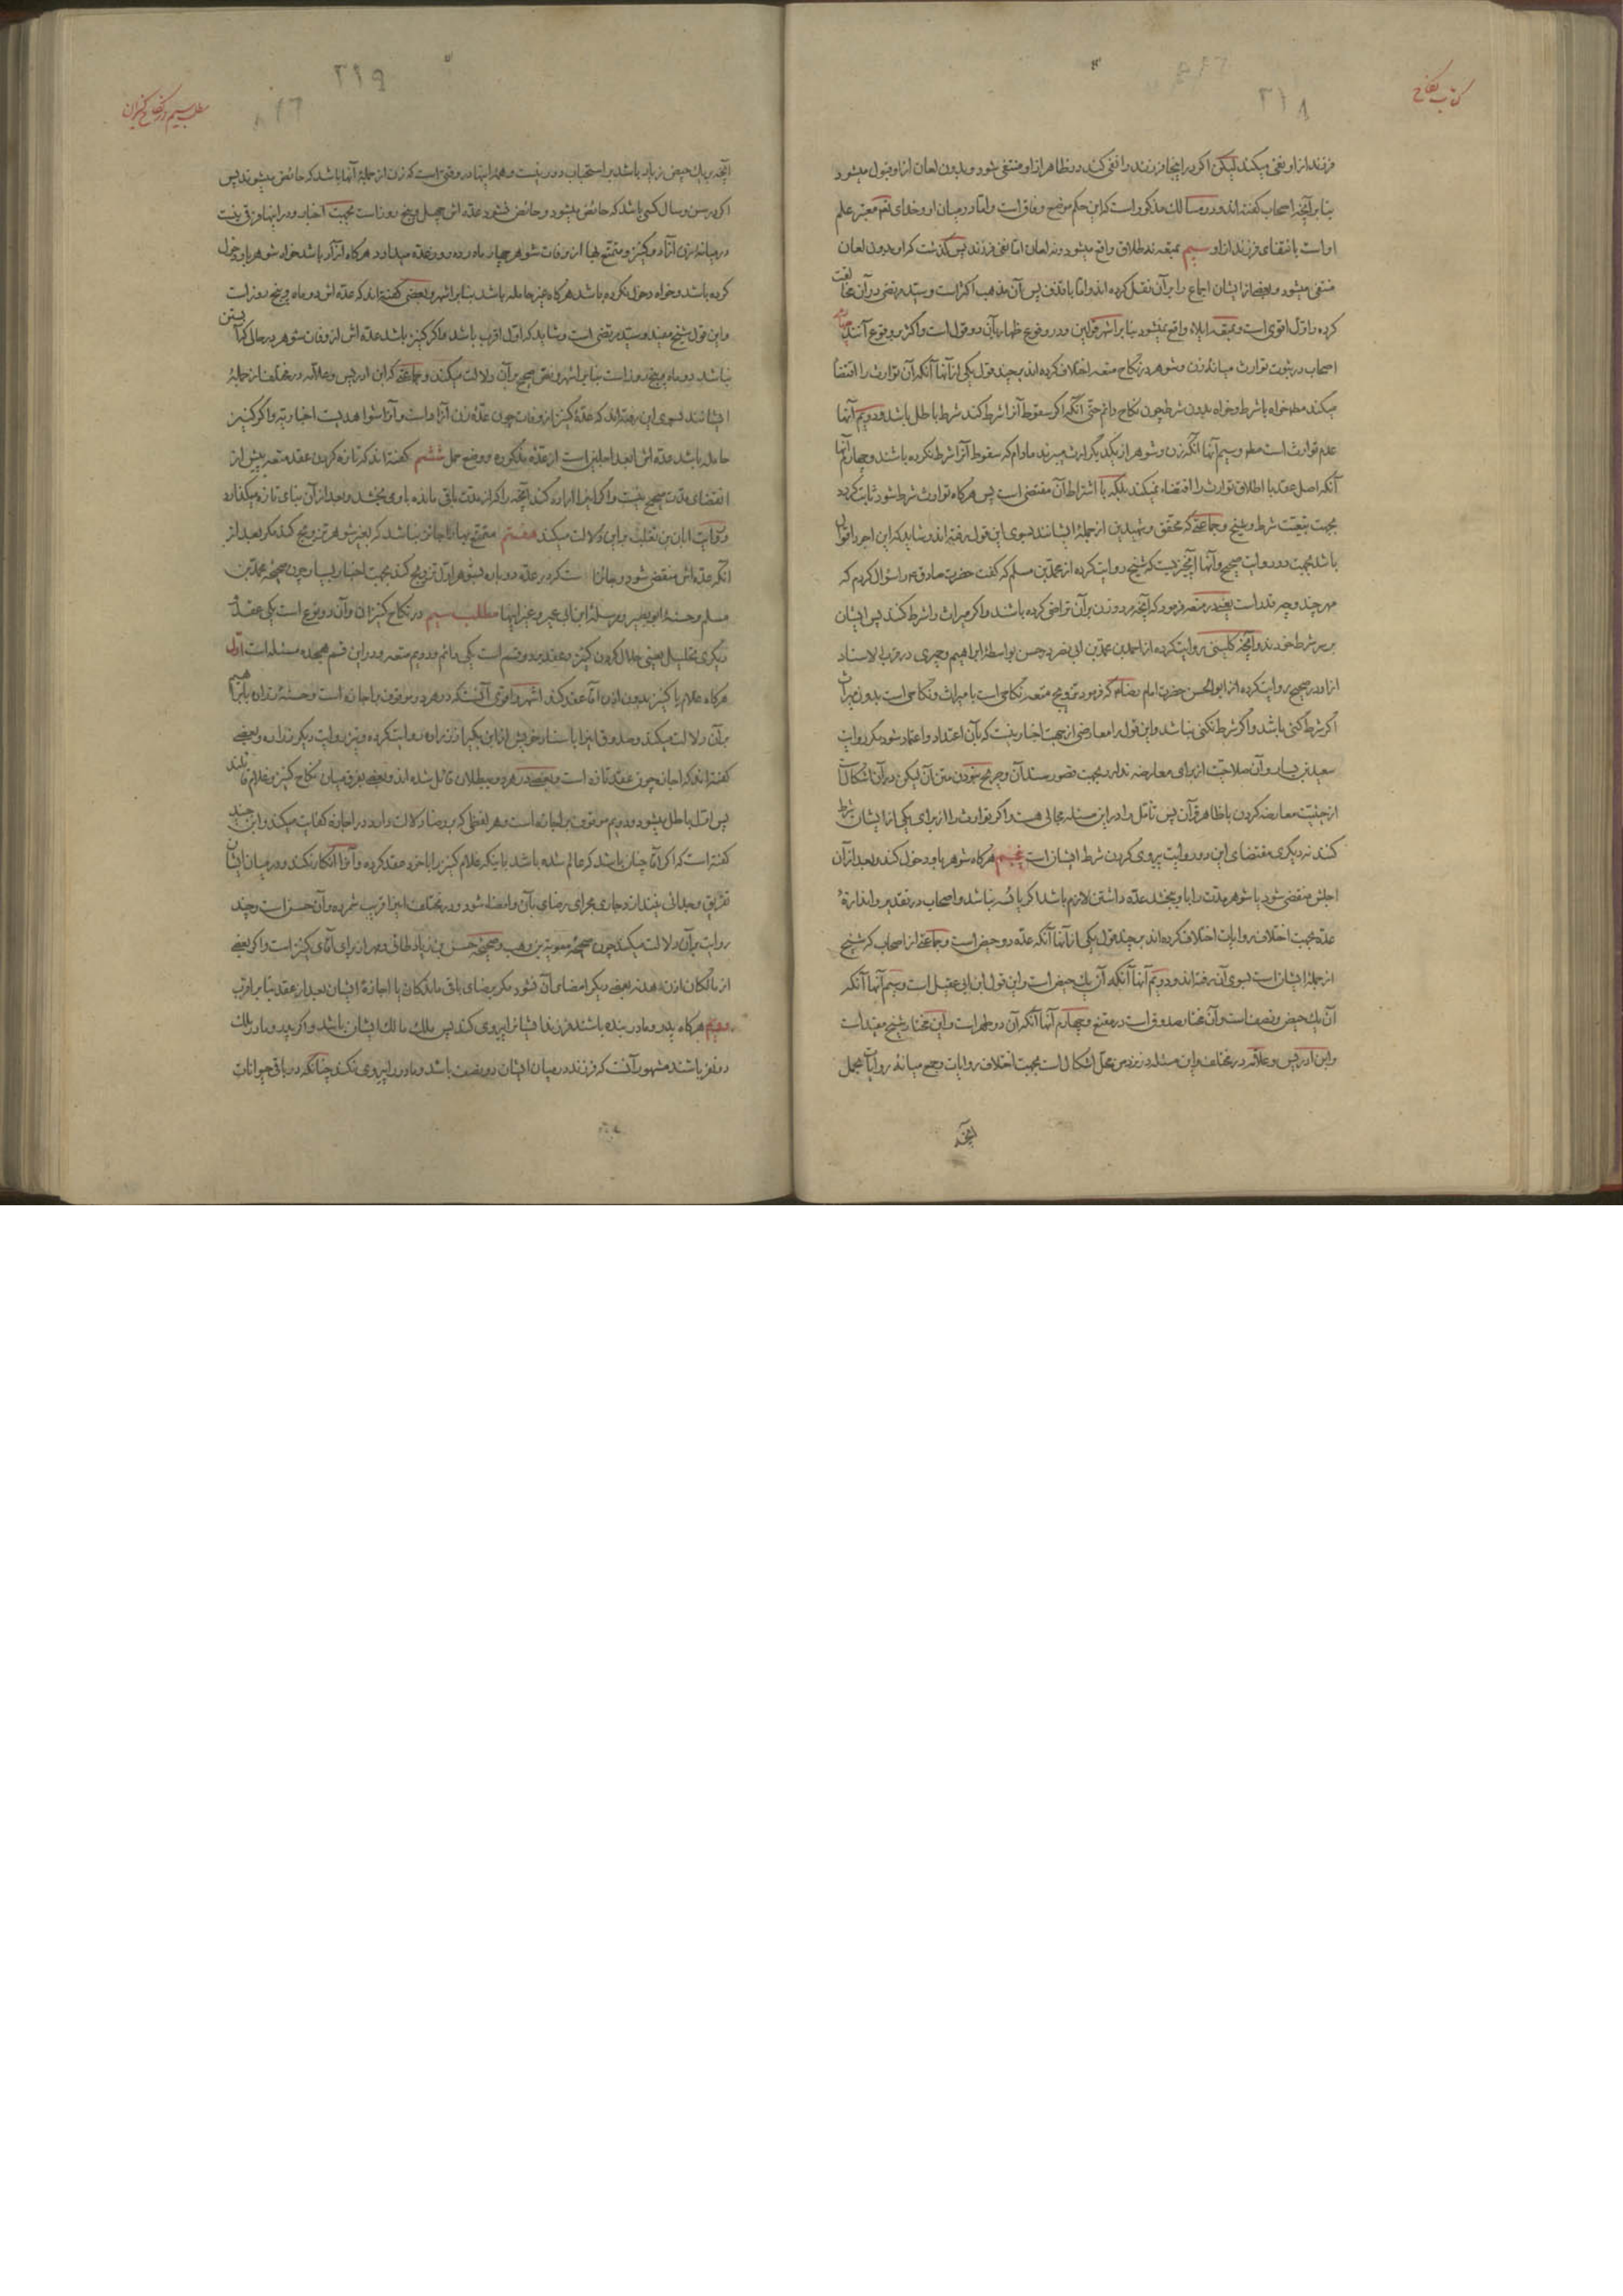 کتاب نکاح
۲۱۸
فرزند از او نفی میکند لیکن اگر در اینجا فرزند را نفی کند در ظاهر از او منتفی شود و بدون لعان از او قبول میشود
بنا بر آنچه اصحاب گفته‌اند و در مسالك مذکور است که این حکم موضع وفاق است و اما در میان او و خدای نعم معتبر علم
او است بانتفای فرزند از او سیم بمتعه نه طلاق واقع میشود و نه لعان اما نفی فرزند پس گذشت که او بدون لعان
منتفی میشود و بعضی از ایشان اجماع را بر آن نقل کرده اند و اما با قذف پس آن مذهب اکثر است و سید مرتضی در آن مخالفت
کرده و اول اقوی است و بمتعه ایلاء واقع نمیشود بنا بر اشهر قولین و در وقوع ظهار بآن دو قول است و اکثر بر وقوع آنند
اصحاب در ثبوت توارث میانهٔ زن و شوهر در نکاح متعه اختلاف کرده اند بر چند قول یکی از آنها آنکه آن توارث را اقتضا
میکند مطه خواه با شرط و خواه بدون شرط چون نکاح دائم حتی آنکه اگر سقوط آنرا شرط کند شرط باطل باشد و دویم آنها
عدم توارث است مطه و سیم آنها آنکه زن و شوهر از یکدیگر ارث میبرند مادام که سقوط آنرا شرط نکرده باشند و چهارم آنها
آنکه اصل عقد با اطلاق توارث را اقتضاء نمیکند بلکه با اشتراط آن مقتضی است پس هرگاه توارث شرط شود ثابت گردد
بجهت تبعیت شرط و شیخ و جماعتی که محقق و شهیدین از جملهٔ ایشانند بسوی این قول رفته اند و شاید که این اجود اقوال
باشد بجهت دو روایت صحیح و آنها آنچیزیست که شیخ روایت کرده از محمد بن مسلم که گفت حضرت صادق ع را سؤال کردم که
مهر چند و چه قدر است یعنی در متعه فرمود که آنچه مرد و زن بر آن تراضی کرده باشند و اگر میراث را شرط کنند پس ایشان
بر سر شرط خودند و آنچه کلینی روایت کرده از احمد بن محمد بن ابی نصر و حسن بواسطهٔ ابراهیم و حمیری در قرب الاسناد
از او در صحیح روایت کرده از ابوالحسن حضرت امام رضا ع که فرمود تزویج متعه نکاحی است با میراث و نکاحی است بدون میراث
اگر شرط کنی باشد و اگر شرط نکنی نباشد و این قول را معارضی از جهت اخبار نیست که بآن اعتداد و اعتماد شود مگر روایت
سعید بن یسار و آن صلاحیت از برای معارضه ندارد بجهت قصور سند آن و صریح نبودن متن آن لیکن در آن اشکال است
از حیثیت معارضه کردن با ظاهر قرآن پس تامل را در این مسئله مجالی هست و اگر توارث را از برای یکی از ایشان شرط
کنند نه دیگری مقتضای این دو روایت پیروی کردن شرط ایشان است پنجم هرگاه شوهر باو دخول کند و بعد از آن
اجلش منقضی شود یا شوهر مدت را باو بخشد عده داشتن لازم باشد اگر یائسه نباشد و اصحاب در تقدیر و اندازهٔ
عده بجهت اختلاف روایات اختلاف کرده اند بر چند قول یکی از آنها آنکه عده دو حیض است و جماعتی از اصحاب که شیخ
از جملهٔ ایشان است بسوی آن رفته اند و دویم آنها آنکه آن یك حیض است و این قول ابن ابی عقیل است و سیم آنها آنکه
آن یك حیض و نصف است و آن مختار صدوق است در مقنع و چهارم آنها آنکه آن دو طهر است و این مختار شیخ مفید است
و ابن ادریس و علامه در مختلف و این مسئله در نزد من محل اشکال است بجهت اختلاف روایات و جمع میانهٔ روایات بحمل
آنچه
مطلب سیم در نکاح کنیزان
۲۱۹
آنچه بر یك حیض زیاد باشد بر استحباب دور نیست و همهٔ اینها در وقتی است که زن از جملهٔ آنها باشد که حائض میشوند پس
اگر در سن و سال کسی باشد که حائض میشود و حائض نشود عده اش چهل و پنج روز است بجهت اخبار و در اینها فرقی نیست
در میانهٔ زن آزاد و کنیز و متمتع بها از وفات شوهر چهار ماه و ده روز عده میدارد هرگاه آزاد باشد خواه شوهر باو دخول
کرده باشد و خواه دخول نکرده باشد هرگاه غیر حامله باشد بنا بر اشهر و بعضی گفته اند که عده اش دو ماه و پنج روز است
و این قول شیخ مفید و سید مرتضی است و شاید که اول اقرب باشد و اگر کنیز باشد عده اش از وفات شوهر در حالی که آبستن
نباشد دو ماه و پنج روز است بنا بر اشهر و نص صحیح بر آن دلالت میکند و جماعتی که ابن ادریس و علامه در مختلف از جملهٔ
ایشانند بسوی این رفته اند که عدهٔ کنیز از وفات چون عدهٔ زن آزاد است و آنرا شواهدیست اخباریه و اگر کنیز
حامله باشد عده اش ابعد اجلین است از عدهٔ مذکوره و وضع حمل ششم گفته اند که تازه کردن عقد متعه پیش از
انقضای مدت صحیح نیست و اگر اینرا اراده کند آنچه را که از مدت باقی مانده باو می بخشد و بعد از آن بنای تازه میگذارد
و روایت ابان بن تغلب بر این دلالت میکند هفتم متمتع بها را جائز نباشد که بغیر شوهر تزویج کند مگر بعد از
آنکه عده اش منقضی شود و جائز است که در عده دوباره بشوهر اول تزویج کند بجهت اخبار بسیار چون صحیحهٔ محمد بن
مسلم و حسنهٔ ابو بصیر و مرسلهٔ ابن ابی عمیر و غیر اینها مطلب سیم در نکاح کنیزان و آن دو نوع است یکی عقد و
دیگری تحلیل یعنی حلال کردن کنیز و عقد بر دو قسم است یکی دائم و دویم متعه و در این قسم هیجده مسئله است اول
هرگاه غلام یا کنیز بدون اذن آقا عقد کند اشهر و اقوی آنست که در هر دو موقوف باجازه است و حسنهٔ زراره بابراهیم
بر آن دلالت میکند و صدوق اینرا باسناد خویش از ابن بکیر از زراره روایت کرده و نیز روایت دیگر زراره و بعضی
گفته اند که اجازه چون عقد تازه است و بعضی در هر دو ببطلان قائل شده اند و بعضی بفرق میان نکاح کنیز و غلام قائلند
پس اول باطل میشود و دویم موقوف بر اجازه است و هر لفظی که بر رضا دلالت دارد در اجازه کفایت میکند و ابن جنید
گفته است که اگر آقا چنان باشد که عالم شده باشد باینکه غلام کنیز را با خود عقد کرده و آنرا انکار نکند و در میان ایشان
تفریق و جدائی نیندازد جاری مجرای رضای بآن و امضاء شود و در مختلف اینرا قریب شمرده و آن حسن است و چند
روایت بر آن دلالت میکند چون صحیحهٔ معویة بن وهب و صحیحهٔ حسن بن زیاد طائی و مهر از برای آقای کنیز است و اگر بعضی
از مالکان اذن دهد نه بعضی دیگر امضای آن نشود مگر برضای باقی مالکان یا اجازهٔ ایشان بعد از عقد بنا بر اقرب
دویم هرگاه پدر و مادر بنده باشند فرزند ایشانرا پیروی کند پس ملك مالك ایشان باشد و اگر پدر و مادر ملك
دو نفر باشند مشهور آنست که فرزند در میان ایشان دو نصف باشد و مادر را پیروی نکند چنانکه در باقی حیوانات